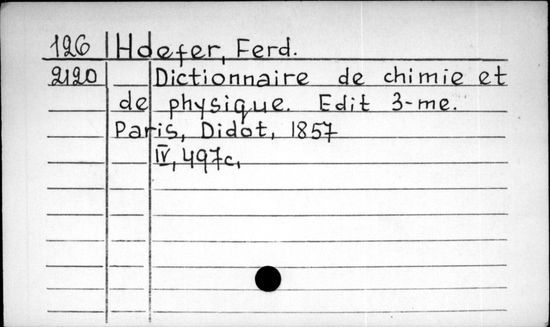 126 Hoefer, Ferd.
2120 Dictionnaire de chimie et
de physique. Edit 3-me.
Paris, Didot, 1857
IV, 497c,